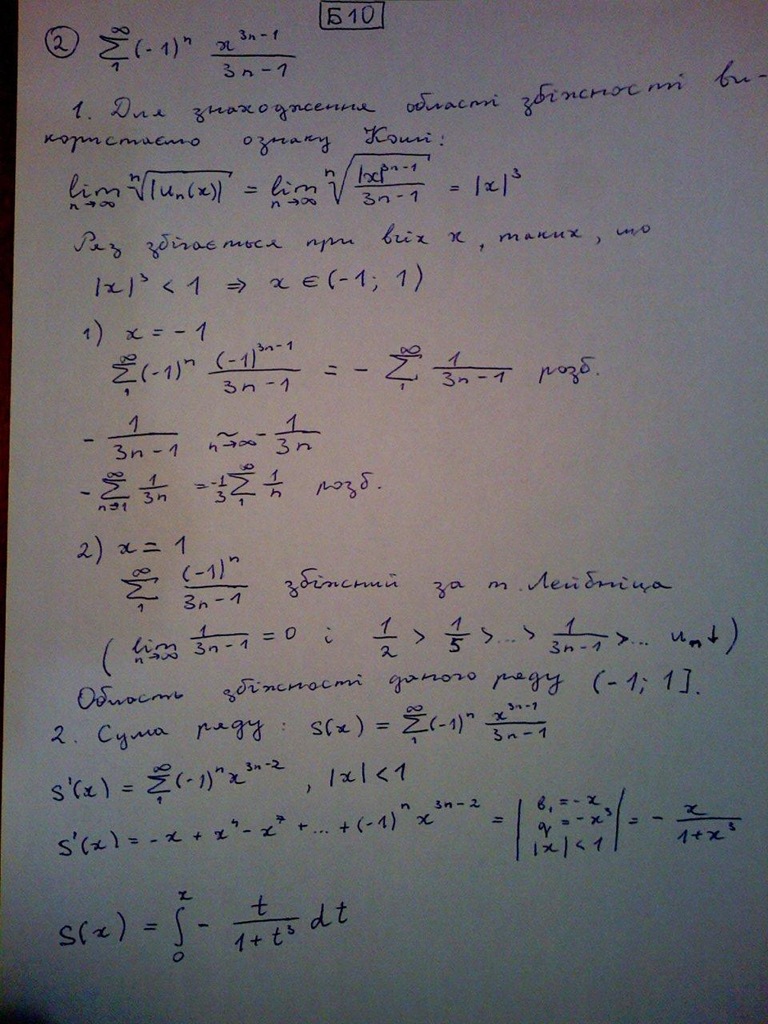 Б10
② ∑₁^∞ (-1)ⁿ x^(3n-1)/(3n-1)
1. Для знаходження області збіжності ви-
користаємо ознаку Коші:
lim_(n→∞) ⁿ√|uₙ(x)| = lim_(n→∞) ⁿ√(|x|^(3n-1)/(3n-1)) = |x|³
Ряд збігається при всіх x, таких, що
|x|³ < 1 ⇒ x ∈ (-1; 1)
1) x = -1
∑₁^∞ (-1)ⁿ (-1)^(3n-1)/(3n-1) = - ∑₁^∞ 1/(3n-1) розб.
- 1/(3n-1) ~_(n→∞) - 1/(3n)
- ∑_(n=1)^∞ 1/(3n) = -1/3 ∑₁^∞ 1/n розб.
2) x = 1
∑₁^∞ (-1)ⁿ/(3n-1) збіжний за т. Лейбніца
( lim_(n→∞) 1/(3n-1) = 0 і 1/2 > 1/5 > ... > 1/(3n-1) > ... uₙ↓ )
Область збіжності даного ряду (-1; 1].
2. Сума ряду: S(x) = ∑₁^∞ (-1)ⁿ x^(3n-1)/(3n-1)
S'(x) = ∑₁^∞ (-1)ⁿ x^(3n-2), |x| < 1
S'(x) = -x + x⁴ - x⁷ + ... + (-1)ⁿ x^(3n-2) = | b₁ = -x q = -x³ |x| < 1 | = - x/(1+x³)
S(x) = ∫₀^x - t/(1+t³) dt